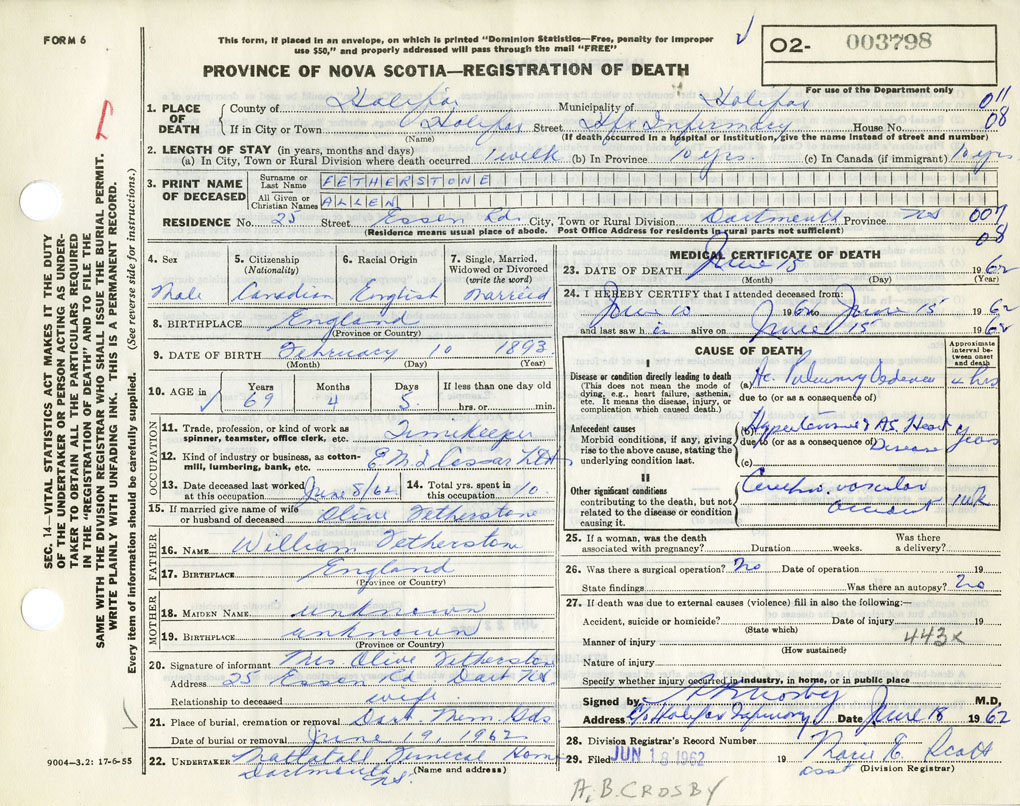 FORM 6
This form, if placed in an envelope, on which is printed "Dominion Statistics—Free, penalty for improper
use $50," and properly addressed will pass through the mail "FREE"
PROVINCE OF NOVA SCOTIA—REGISTRATION OF DEATH
O2- 003798
For use of the Department only
011
08
1. PLACE OF DEATH
County of Halifax Municipality of Halifax
If in City or Town Halifax Street Hfx Infirmary House No.
(Name) (If death occurred in a hospital or institution, give the name instead of street and number)
2. LENGTH OF STAY (in years, months and days)
(a) In City, Town or Rural Division where death occurred 1 week (b) In Province 10 yrs. (c) In Canada (if immigrant) 10 yrs
3. PRINT NAME OF DECEASED
Surname or Last Name FETHERSTONE
All Given or Christian Names ALLEN
RESIDENCE No. 25 Street Essen Rd. City, Town or Rural Division Dartmouth Province NS
(Residence means usual place of abode. Post Office Address for residents in rural parts not sufficient)
007
08
SEC. 14—VITAL STATISTICS ACT MAKES IT THE DUTY
OF THE UNDERTAKER OR PERSON ACTING AS UNDER-
TAKER TO OBTAIN ALL THE PARTICULARS REQUIRED
IN THE "REGISTRATION OF DEATH" AND TO FILE THE
SAME WITH THE DIVISION REGISTRAR WHO SHALL ISSUE THE BURIAL PERMIT.
WRITE PLAINLY WITH UNFADING INK. THIS IS A PERMANENT RECORD.
Every item of Information should be carefully supplied. (See reverse side for instructions.)
4. Sex
Male
5. Citizenship
(Nationality)
Canadian
6. Racial Origin
English
7. Single, Married,
Widowed or Divorced
(write the word)
Married
8. BIRTHPLACE England
(Province or Country)
9. DATE OF BIRTH February 10 1893
(Month) (Day) (Year)
10. AGE in Years Months Days If less than one day old
69 4 5 hrs. or min.
OCCUPATION
11. Trade, profession or kind of work as
spinner, teamster, office clerk, etc. Timekeeper
12. Kind of industry or business, as cotton-
mill, lumbering, bank, etc. E.M.I Cossar Ltd
13. Date deceased last worked
at this occupation June 8/62
14. Total yrs. spent in
this occupation 10.
15. If married give name of wife
or husband of deceased Olive Fetherstone
FATHER
16. NAME William Fetherstone
17. BIRTHPLACE England
(Province or Country)
MOTHER
18. MAIDEN NAME unknown
19. BIRTHPLACE unknown
(Province or Country)
20. Signature of informant Mrs Olive Fetherstone
Address 25 Essen Rd Dart NS.
Relationship to deceased wife
21. Place of burial, cremation or removal Dart. Mem. Gds
Date of burial or removal June 19, 1962
22. UNDERTAKER Mattatall Funeral Home
Dartmouth NS.
(Name and address)
9004—3.2: 17-6-55
MEDICAL CERTIFICATE OF DEATH
23. DATE OF DEATH June 15 1962
(Month) (Day) (Year)
24. I HEREBY CERTIFY that I attended deceased from:
June 10 1962 to June 15 1962
and last saw h im alive on June 15 1962
CAUSE OF DEATH
Approximate interval between onset and death
I
Disease or condition directly leading to death
(This does not mean the mode of
dying, e.g., heart failure, asthenia,
etc. It means the disease, injury, or
complication which caused death.)
(a) Ac. Pulmonary Oedema 4 hrs
due to (or as a consequence of)
Antecedent causes
Morbid conditions, if any, giving
rise to the above cause, stating the
underlying condition last.
(b) Hypertensive & AS. Heart years
due to (or as a consequence of) Disease
(c)
II
Other significant conditions
contributing to the death, but not
related to the disease or condition
causing it.
Cerebro. vascular
accident 1 wk
25. If a woman, was the death
associated with pregnancy? Duration weeks. Was there
a delivery?
26. Was there a surgical operation? No Date of operation 19
State findings Was there an autopsy? No
27. If death was due to external causes (violence) fill in also the following:—
Accident, suicide or homicide? Date of injury 19
(State which)
Manner of injury 443x
(How sustained)
Nature of injury
Specify whether injury occurred in industry, in home, or in public place
Signed by A B Crosby M.D,
Address c/o Halifax Infirmary Date June 18 1962
28. Division Registrar's Record Number
29. Filed JUN 18 1962 19
asst (Division Registrar)
A.B. CROSBY